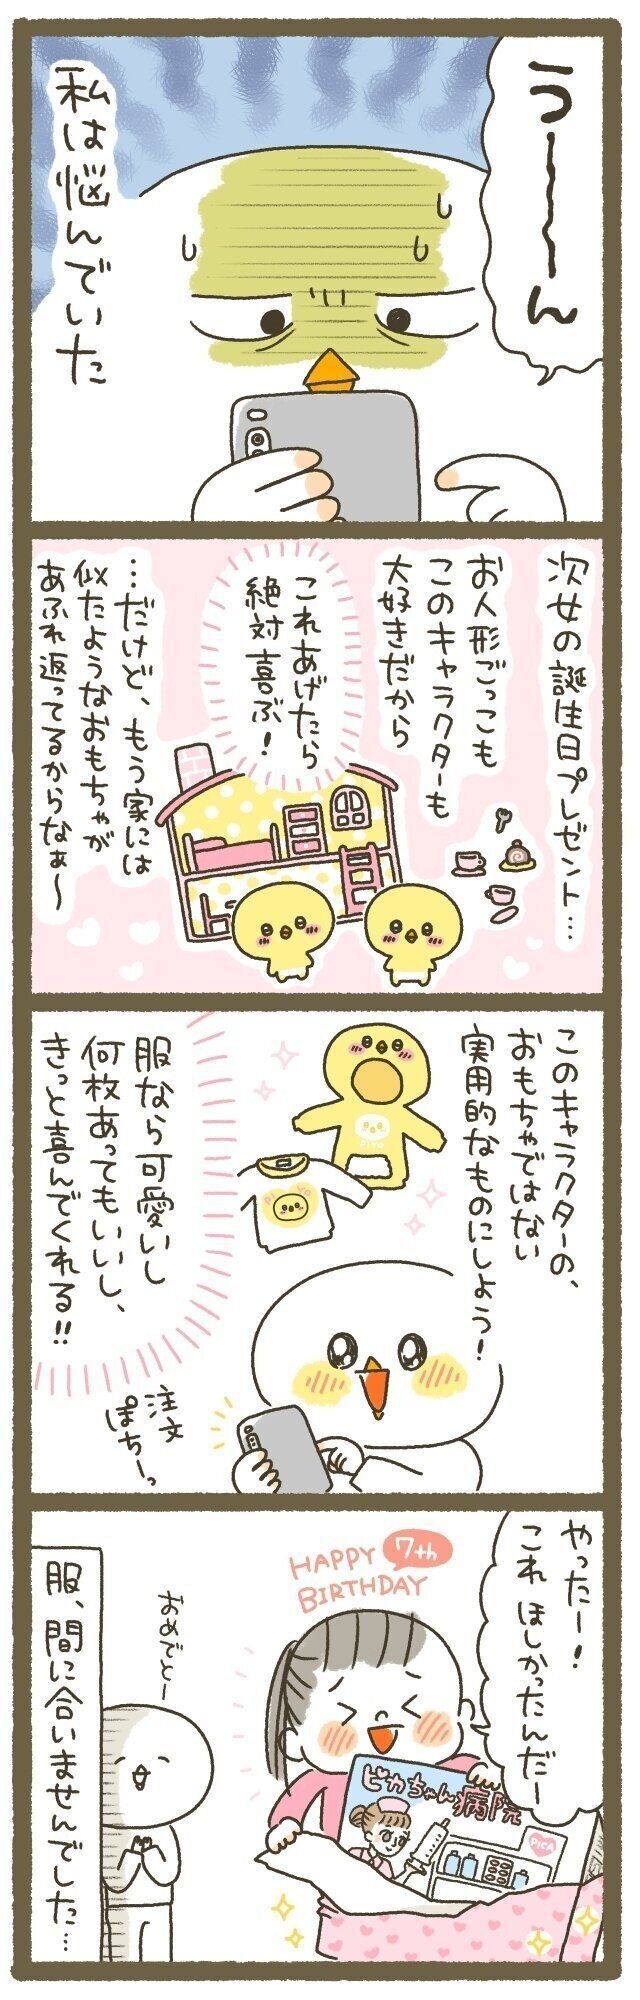 うーーーん
私は悩んでいた
次女の誕生日プレゼント…
お人形ごっこも
このキャラクターも
大好きだから
これあげたら
絶対喜ぶ！
…だけど、もう家には
似たようなおもちゃが
あふれ返ってるからなぁ～
このキャラクターの、
おもちゃではない
実用的なものにしよう！
PIYO
PIYO
服なら可愛いし
何枚あってもいいし、
きっと喜んでくれる!!
注文
ぽちーっ
やったー！
これほしかったんだー
HAPPY 7th
BIRTHDAY
ピカちゃん病院
PICA
おめでとー
服、間に合いませんでした…